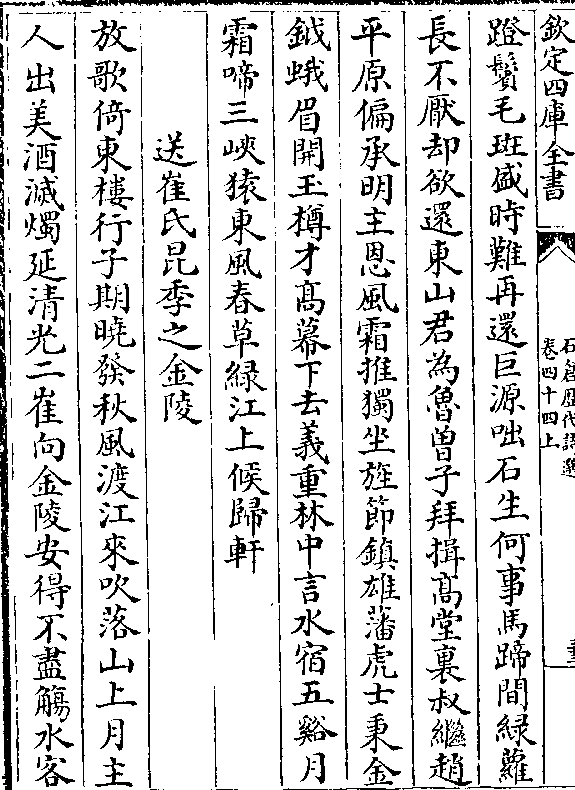 欽定四庫全書
石倉歷代詩選
卷四十四上
蹬鬢毛斑盛時難再還巨源咄石生何事馬蹄間綠蘿
長不厭却欲還東山君為魯曾子拜揖髙堂裏叔繼趙
平原偏承明主恩風霜推獨坐旌節鎮雄藩虎士秉金
鉞蛾眉開玉樽才髙幕下去義重林中言水宿五谿月
霜啼三峽猿東風春草緑江上候歸軒
送崔氏昆季之金陵
放歌倚東樓行子期曉發秋風渡江來吹落山上月主
人出美酒滅燭延清光二崔向金陵安得不盡觴水客